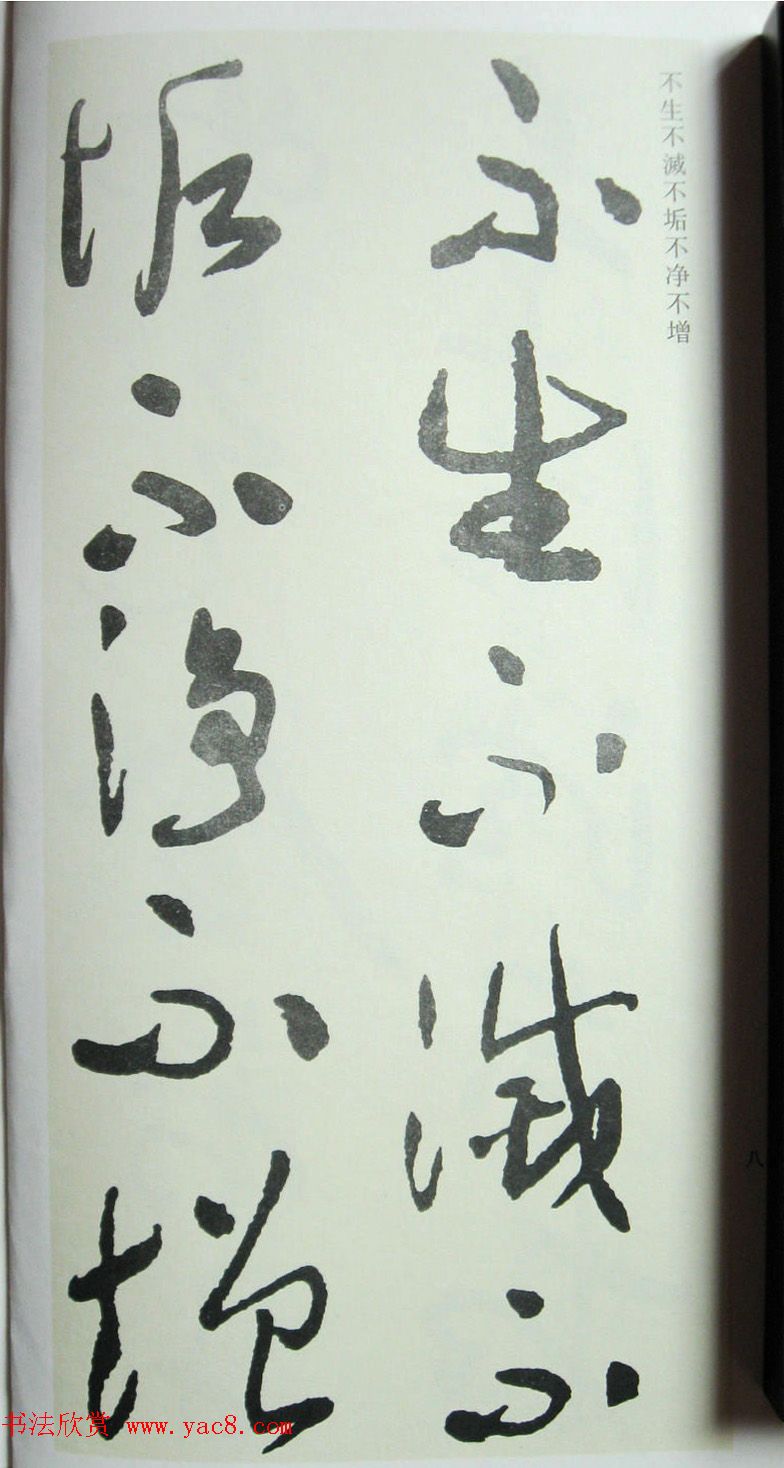 不生不滅不垢不净不增
不生不滅不
垢不净不增
八
书法欣赏 www.yac8.com